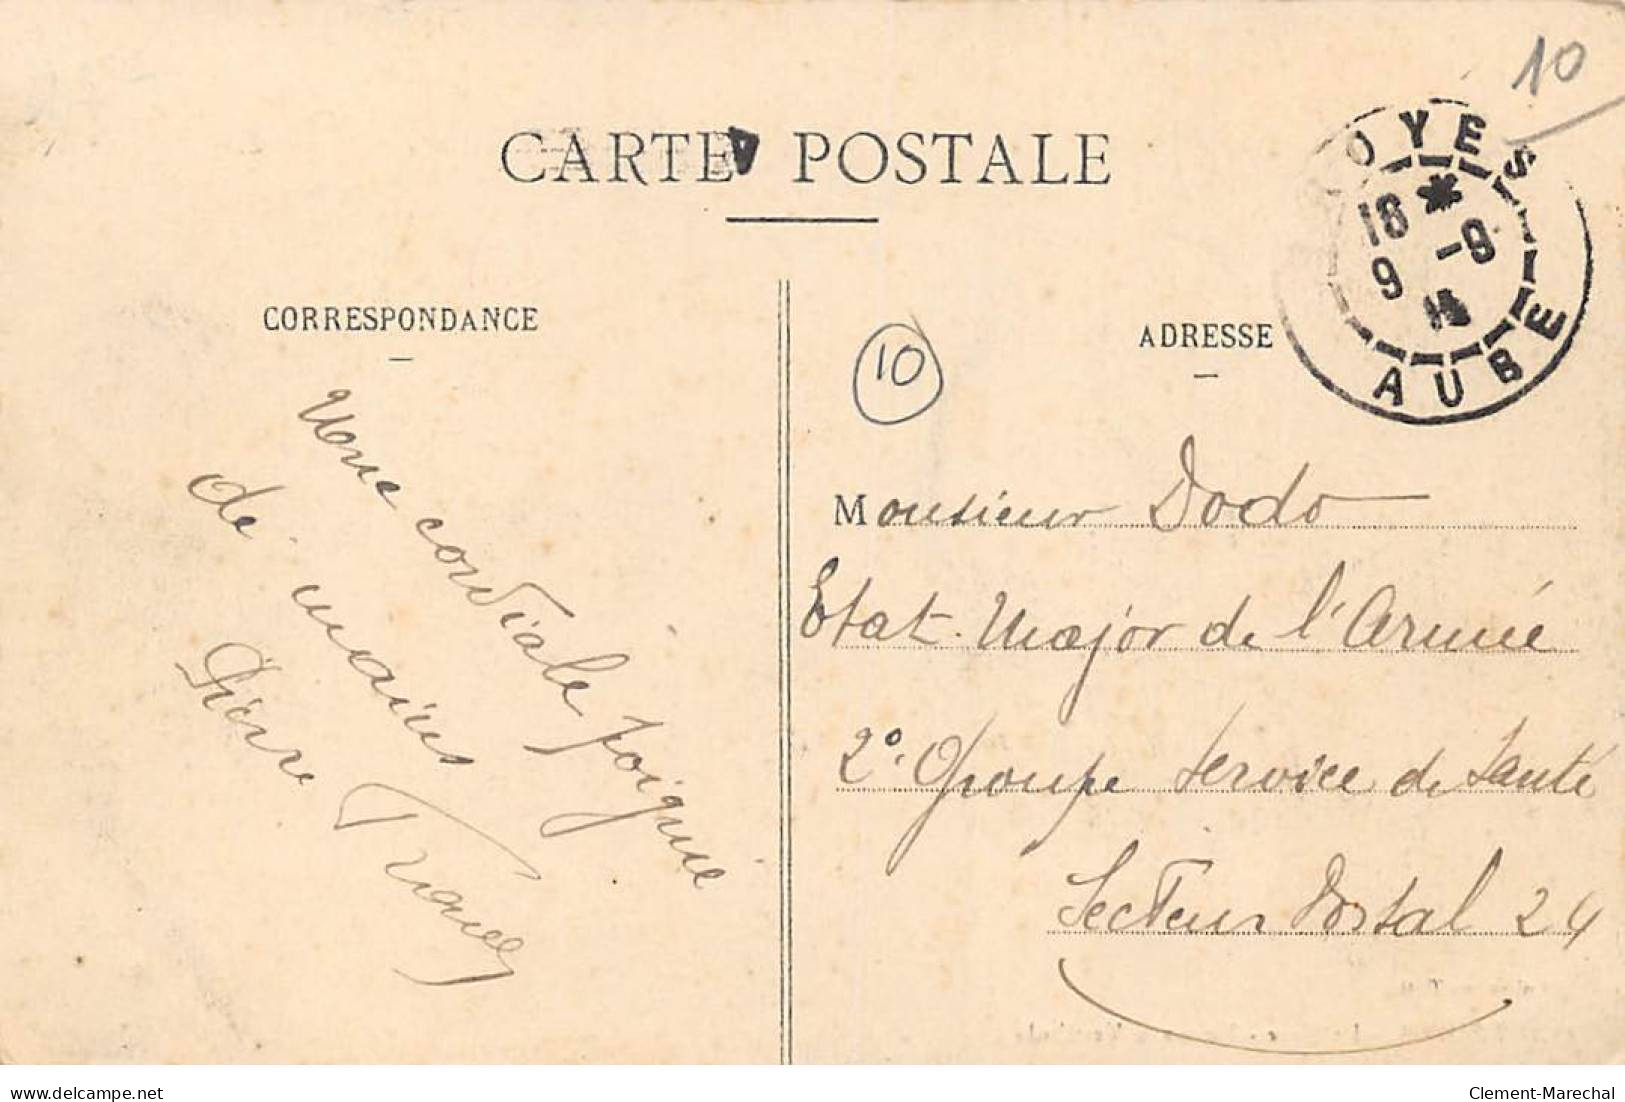 10
CARTE POSTALE
OYES
18 * -9
9
AUBE
CORRESPONDANCE
ADRESSE
10
Une cordiale poignée
de mains
Pierre
Monsieur Dodo
Etat-Major de l'Armée
2° Groupe Service de Santé
Secteur Postal 24
delcampe.net
Clement-Marechal